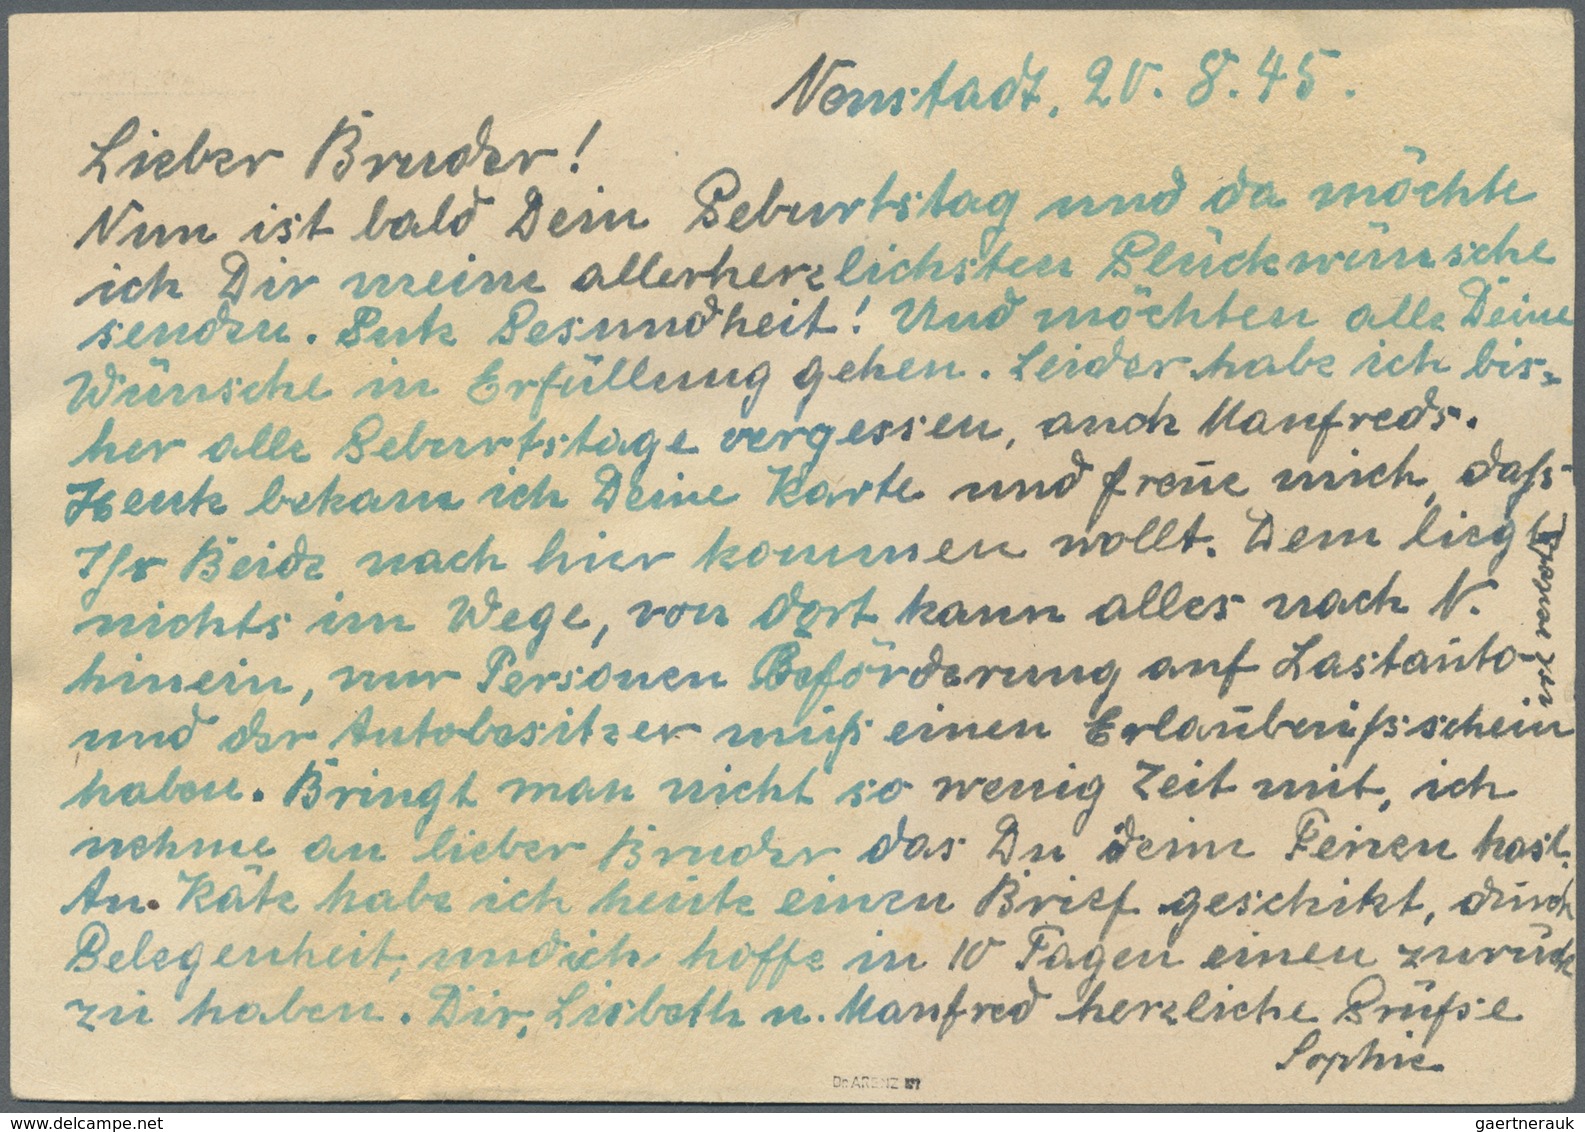 Neustadt, 20. 8. 45.
Lieber Bruder!
Nun ist bald Dein Geburtstag und da möchte
ich Dir meine allerherzlichsten Glückwünsche
senden. Gute Gesundheit! Und möchten alle Deine
Wünsche in Erfüllung gehen. Leider habe ich bis-
her alle Geburtstage vergessen, auch Manfreds.
Heute bekam ich Deine Karte und freue mich, daß
Ihr Beide nach hier kommen wollt. Dem liegt
nichts im Wege, von dort kann alles nach N.
hinein, nur Personen Beförderung auf Lastauto
ist verboten
und der Autobesitzer muß einen Erlaubnißschein
haben. Bringt man nicht so wenig Zeit mit, ich
nehme an lieber Bruder das Du deine Ferien hast.
An Käte habe ich heute einen Brief geschikt, durch
Gelegenheit, und ich hoffe in 10 Tagen einen zurück
zu haben. Dir, Lisbeth u. Manfred herzliche Grüße
Sophie
Dr. ARENZ
gaertnerauk / delcampe.net